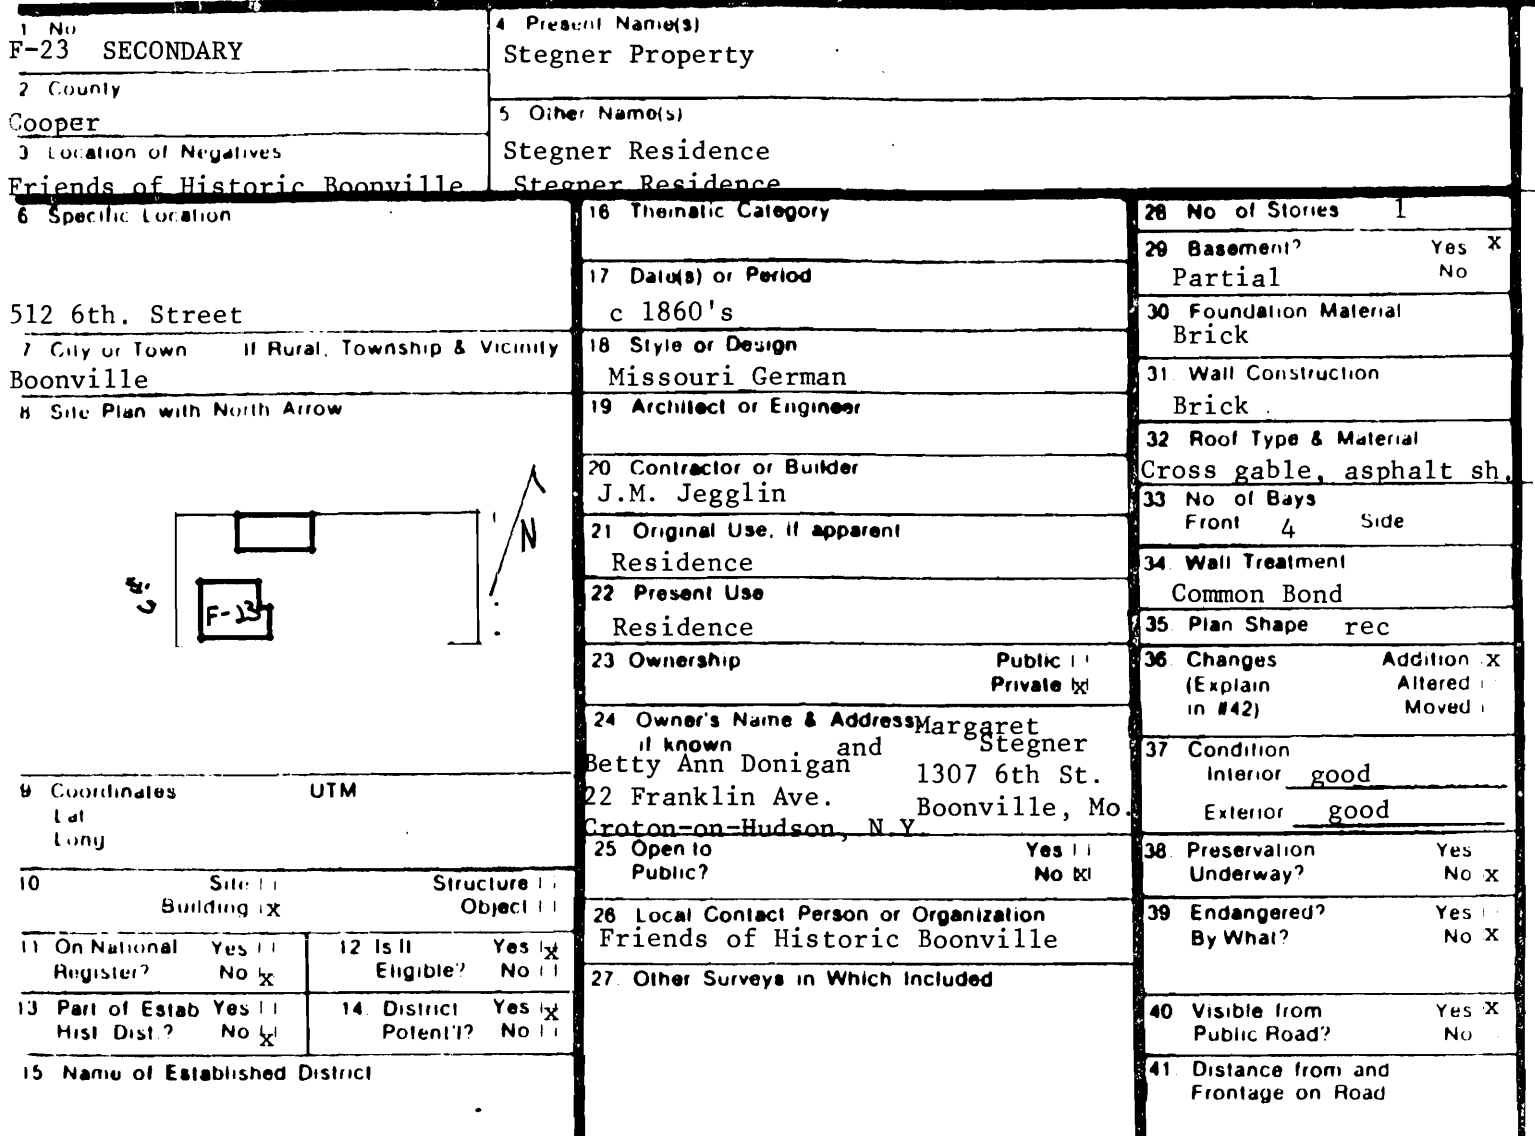 1 No
F-23 SECONDARY
2 County
Cooper
3 Location of Negatives
Friends of Historic Boonville
4 Present Name(s)
Stegner Property
5 Other Name(s)
Stegner Residence
Stegner Residence
6 Specific Location
512 6th. Street
7 City or Town If Rural, Township & Vicinity
Boonville
8 Site Plan with North Arrow
N
F-23
9 Coordinates UTM
Lat
Long
10 Site
Structure
Building x
Object
11 On National Register? Yes
No x
12 Is It Eligible? Yes x
No
13 Part of Estab Hist Dist.? Yes
No x
14. District Potent'l? Yes x
No
15 Name of Established District
16 Thematic Category
17 Date(s) or Period
c 1860's
18 Style or Design
Missouri German
19 Architect or Engineer
20 Contractor or Builder
J.M. Jegglin
21 Original Use, if apparent
Residence
22 Present Use
Residence
23 Ownership Public
Private x
24 Owner's Name & Address
if known
Betty Ann Donigan and Margaret Stegner
22 Franklin Ave. 1307 6th St.
Croton-on-Hudson, N.Y. Boonville, Mo.
25 Open to Public? Yes
No x
26 Local Contact Person or Organization
Friends of Historic Boonville
27. Other Surveys in Which Included
28 No of Stories 1
29 Basement? Yes x
Partial No
30 Foundation Material
Brick
31. Wall Construction
Brick
32 Roof Type & Material
Cross gable, asphalt sh.
33 No of Bays
Front 4 Side
34. Wall Treatment
Common Bond
35. Plan Shape rec
36. Changes Addition x
(Explain Altered
in #42) Moved
37 Condition
Interior good
Exterior good
38. Preservation Yes
Underway? No x
39 Endangered? Yes
By What? No x
40 Visible from Yes x
Public Road? No
41. Distance from and
Frontage on Road